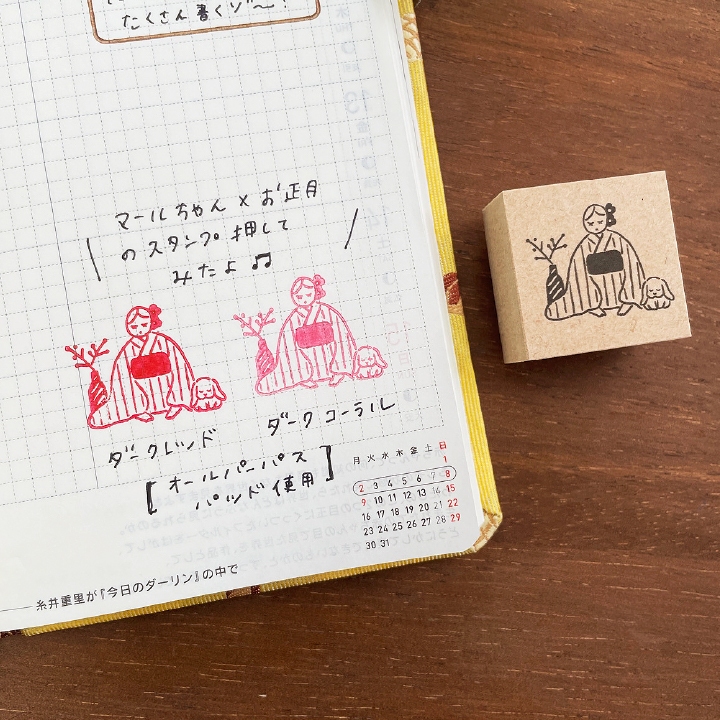 たくさん書くゾ〜!
マールちゃん×お正月
のスタンプ押して
みたよ♫
ダークレッド
ダークコーラル
[オールパーパス
パッド使用]
月 火 水 木 金 土 日
1
2 3 4 5 6 7 8
9 10 11 12 13 14 15
16 17 18 19 20 21 22
23 24 25 26 27 28 29
30 31
糸井重里が『今日のダーリン』の中で